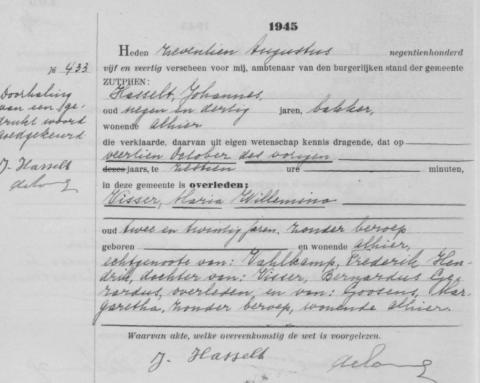 1945
Heden zeventien Augustus negentienhonderd
№ 433
vijf en veertig verscheen voor mij, ambtenaar van den burgerlijken stand der gemeente
ZUTPHEN:
Hasselt, Johannes,
Doorhaling
van een ge-
drukt woord
goedgekeurd
oud negen en dertig jaren, bakker,
wonende alhier
die verklaarde, daarvan uit eigen wetenschap kennis dragende, dat op
veertien October des vorigen
J. Hasselt
dezes jaars, te zestien ure minuten,
in deze gemeente is overleden:
Visser, Maria Willemina
oud twee en twintig jaren, zonder beroep
geboren en wonende alhier,
echtgenoote van: Vahlkamp, Frederik Hen-
drik, dochter van: Visser, Bernardus Eve-
rardus, overleden, en van: Goosens, Mar-
garetha, zonder beroep, wonende alhier.
Waarvan akte, welke overeenkomstig de wet is voorgelezen.
J. Hasselt